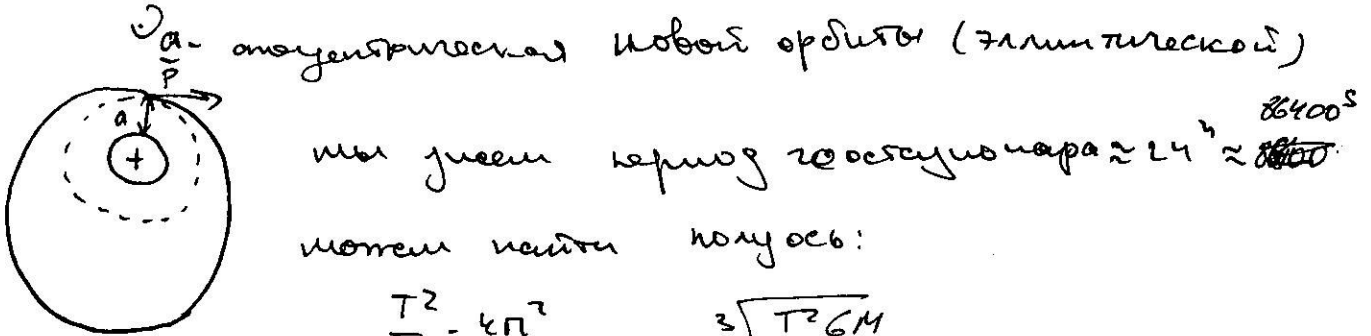 апоцентрическая новой орбиты (эллиптической)
P
a
мы знаем период геостационара ≈ 24ʰ ≈ 86400ˢ
можем найти полуось:
T² 4π² ³√T²GM